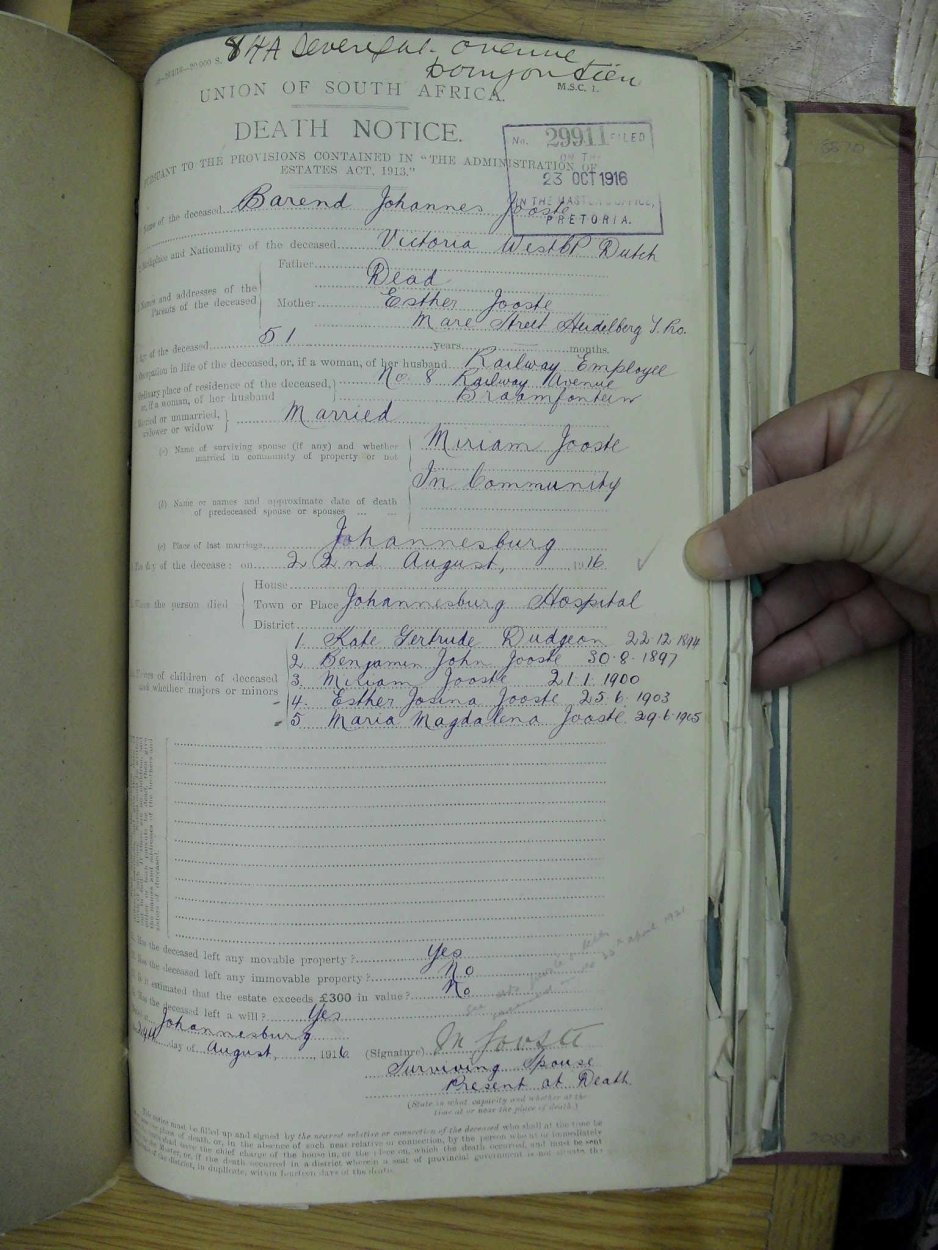 UNION OF SOUTH AFRICA.
M.S.C. 1.
DEATH NOTICE.
No. 29911 FILED
ON THE
23 OCT 1916
IN THE MASTER'S OFFICE,
PRETORIA.
PURSUANT TO THE PROVISIONS CONTAINED IN "THE ADMINISTRATION OF
ESTATES ACT, 1913."
Name of the deceased Barend Johannes Jooste
Birthplace and Nationality of the deceased Victoria West Dutch
Names and addresses of the Parents of the deceased
Father Dead
Mother Esther Jooste
Mare Street Heidelberg
of the deceased 51 years months.
Occupation in life of the deceased, or, if a woman, of her husband Railway Employee
Ordinary place of residence of the deceased, or, if a woman, of her husband No. 8 Railway Avenue
Braamfontein
Married or unmarried, widower or widow Married
(a) Name of surviving spouse (if any) and whether married in community of property or not Miriam Jooste
In Community
(b) Name or names and approximate date of death of predeceased spouse or spouses
(c) Place of last marriage Johannesburg
The day of the decease: on 22nd August, 1916
Where the person died
House
Town or Place Johannesburg Hospital
District
Names of children of deceased and whether majors or minors
1. Kate Gertrude Dudgeon 22 12 1894
2. Benjamin John Jooste 30-8-1897
3. Miriam Jooste 21.1.1900
4. Esther Josina Jooste 25.6.1903
5. Maria Magdalena Jooste 29.6.1905
Has the deceased left any movable property? Yes
Has the deceased left any immovable property? No
Is it estimated that the estate exceeds £300 in value? No
Has the deceased left a will? Yes
Johannesburg
day of August, 1916 (Signature) M Jooste
Surviving Spouse
Present at Death
(State in what capacity and whether at the
time at or near the place of death.)